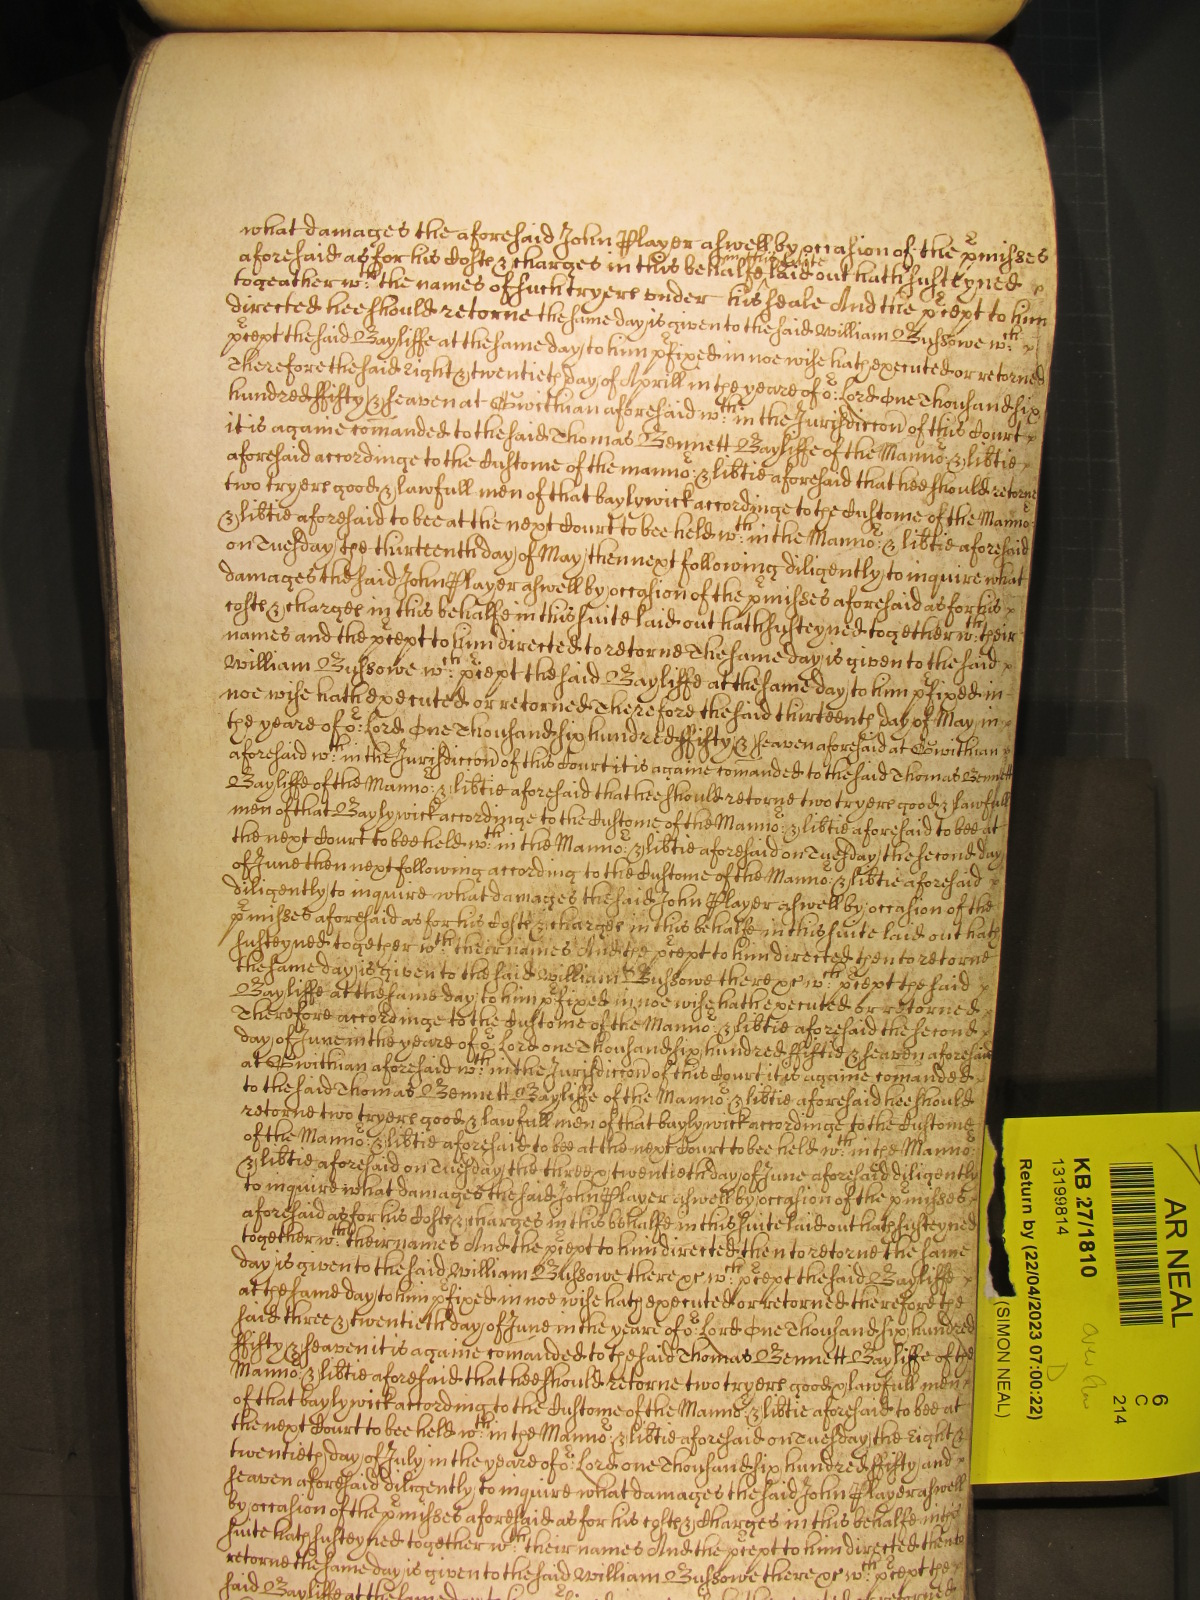 what damages the aforesaid John Player aswell by occasion of the pmisses
aforesaid as for his Costs & charges in this behalfe in this suite laid out hath susteyned
togeather wth: the names of such tryers under his seale And the pcept to him
directed hee should retorne the same day is given to the said William Bussowe wth:
pcept the said Bayliffe at the same day to him pfixed in noe wise hath executed or retorned
Therefore the said Eight & twentieth day of Aprill in the yeare of or: Lord One Thousand six
hundred ffifty & seaven at Gwithian aforesaid wth: in the Jurisdiccon of this Court
it is againe comanded to the said Thomas Bennett Bayliffe of the Mannor: & libtie
aforesaid accordinge to the Custome of the mannor: & libtie aforesaid that hee should retorne
two tryers good & lawfull men of that baylywick accordinge to the Custome of the Mannor:
& libtie aforesaid to bee at the next Court to bee held wth: in the Mannor: & libtie aforesaid
on Tuesday the thirteenth day of May then next following diligently to inquire what
damages the said John Player aswell by occasion of the pmisses aforesaid as for his
costs & charges in this behalfe in this suite laid out hath susteyned together wth: their
names and the pcept to him directed to retorne The same day is given to the said
William Bussowe wth: pcept the said Bayliffe at the same day to him pfixed in
noe wise hath executed or retorned Therefore the said thirteenth day of May in
the yeare of or: Lord One Thousand six hundred ffifty & seaven aforesaid at Gwithian
aforesaid wth: in the Jurisdiccon of this Court it is againe comanded to the said Thomas Bennett
Bayliffe of the Mannor: & libtie aforesaid that hee should retorne two tryers good & lawfull
men of that Baylywick accordinge to the Custome of the Mannor: & libtie aforesaid to bee at
the next Court to bee held wth: in the Mannor: & libtie aforesaid on Tuesday the second day
of June then next following according to the Custome of the Mannor: & libtie aforesaid
diligently to inquire what damages the said John Player aswell by occasion of the
pmisses aforesaid as for his Costs & charges in this behalfe in this suite laid out hath
susteyned together wth: their names And the pcept to him directed then to retorne
the same day is given to the said William Bussowe there &c wth: pcept the said
Bayliffe at the same day to him pfixed in noe wise hath executed or retorned
Therefore accordinge to the Custome of the Mannor: & libtie aforesaid the second
day of June in the yeare of or: Lord one Thousand six hundred ffiftie & seaven aforesaid
at Gwithian aforesaid wth: in the Jurisdiccon of this Court it is againe comanded
to the said Thomas Bennett Bayliffe of the Mannor: & libtie aforesaid hee should
retorne two tryers good & lawfull men of that baylywick accordinge to the Custome
of the Mannor: & libtie aforesaid to bee at the next Court to bee held wth: in the Mannor:
& libtie aforesaid on Tuesday the three & twentieth day of June aforesaid diligently
to inquire what damages the said John Player aswell by occasion of the pmisses
aforesaid as for his Costs & charges in this behalfe in this suite laid out hath susteyned
together wth: their names And the pcept to him directed then to retorne the same
day is given to the said William Bussowe there &c wth: pcept the said Bayliffe
at the same day to him pfixed in noe wise hath executed or retorned therefore the
said three & twentieth day of June in the yeare of or: Lord One Thousand six hundred
ffifty & seaven it is againe comanded to the said Thomas Bennett Bayliffe of the
Mannor: & libtie aforesaid that hee should retorne two tryers good & lawfull men
of that baylywick according to the Custome of the Mannor: & libtie aforesaid to bee at
the next Court to bee held wth: in the Mannor: & libtie aforesaid on Tuesday the Eight &
twentieth day of July in the yeare of or: Lord one Thousand six hundred ffifty and
seaven aforesaid diligently to inquire what damages the said John Player aswell
by occasion of the pmisses aforesaid as for his costs & Charges in this behalfe in this
suite hath susteyned together wth: their names And the pcept to him directed then to
retorne the same day is given to the said William Bussowe there &c wth: pcept the
said Bayliffe at the same day to
AR NEAL
6
C
214
KB 27/1810
13199814
Return by (22/04/2023 07:00:22)
(SIMON NEAL)